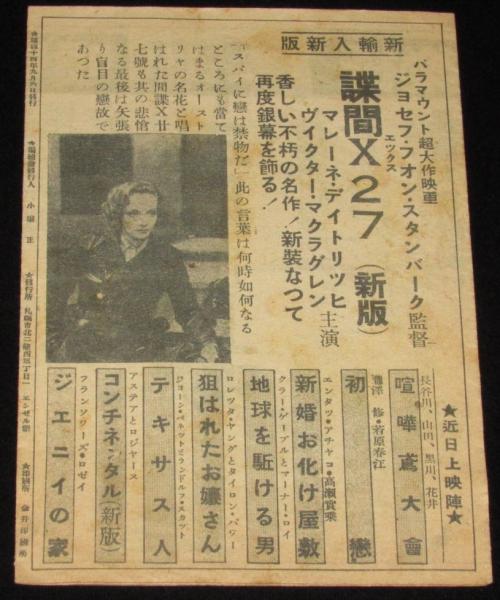 新輸入新版
パラマウント超大作映画
ジョセフ・フォン・スタンバーク監督
間諜X27(新版)
エックス
マレーネ・デイトリッヒ
ヴイクター・マクラグレン
主演
香しい不朽の名作!新装なつて
再度銀幕を飾る!
「スパイに戀は禁物だ」此の言葉は何時如何なる
ところにも當て
はまるオースト
リヤの名花と唱
はれた間諜X廿
七號も其の悲愴
なる最後は矢張
り盲目の戀故で
あつた
★近日上映陣★
長谷川、山田、黒川、花井
喧嘩鳶大會
瀧澤修・若原春江
初戀
エンタツ・アチャコ・高瀬實乘
新婚お化け屋敷
クラーク・ゲーブルとマーナー・ロイ
地球を駈ける男
ロレツタ・ヤングとタイロン・パワー
狙はれたお嬢さん
ジョーン・ベネットとランドルフ・スカツト
テキサス人
アステアとロジャース
コンチネンタル(新版)
フランソワーズ・ロゼイ
ジエニイの家
★昭和十四年九月六日發行
★編輯兼發行人 小塚正
★發行所 札幌市北二條西四丁目一 エンゼル館
★印刷所 金井印刷所